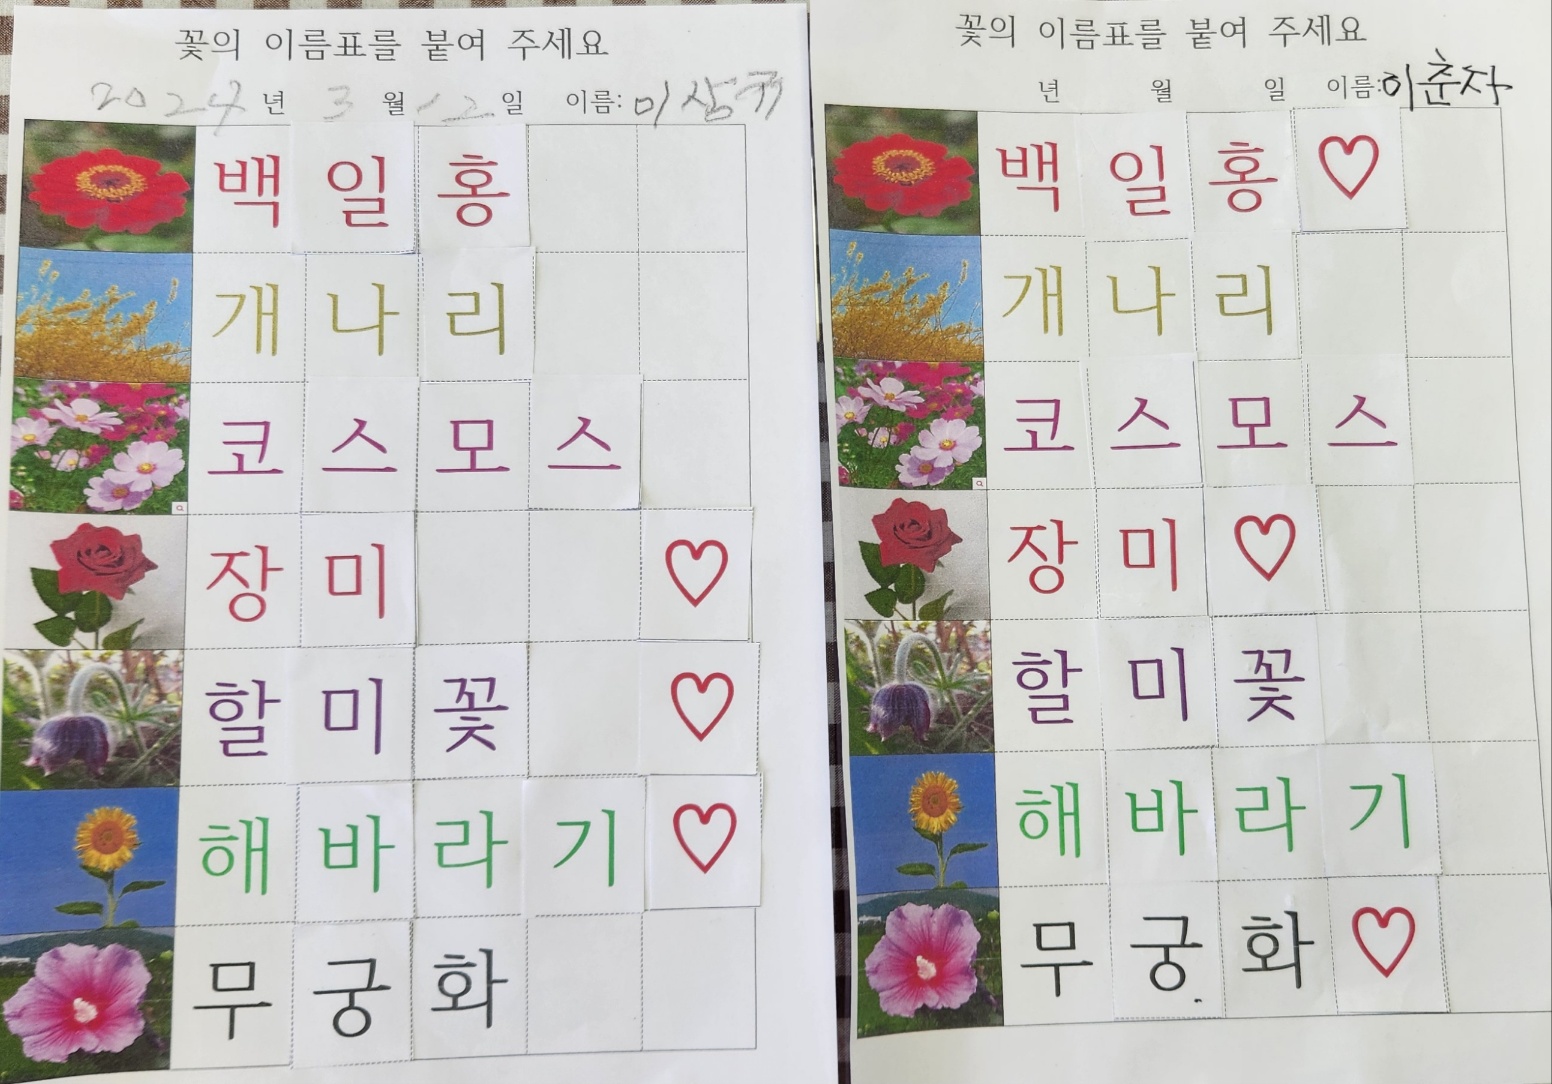 꽃의 이름표를 붙여 주세요
2024년 3월 12일 이름: 이삼귀
백일홍
개나리
코스모스
장미 ♡
할미꽃 ♡
해바라기 ♡
무궁화
꽃의 이름표를 붙여 주세요
년 월 일 이름: 이춘자
백일홍 ♡
개나리
코스모스
장미 ♡
할미꽃
해바라기
무궁화 ♡